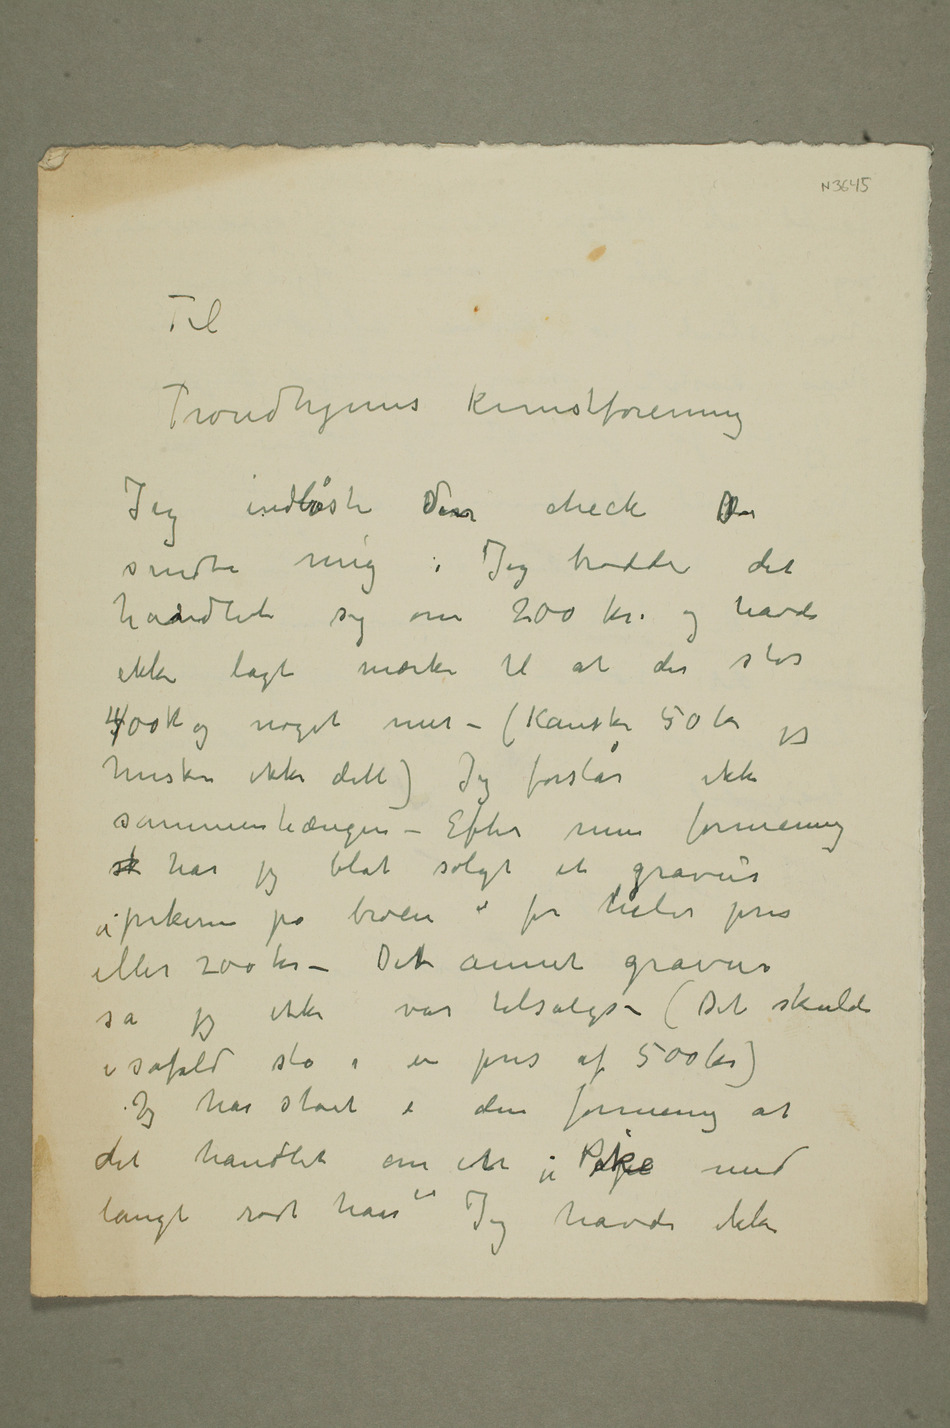 N3645
Til
Trondhjems Kunstforening
Jeg indløste Den check De
sendte mig. Jeg trodde det
handlet sig om 200 kr. og havde
ikke lagt mærke til at der stod
400 kr og noget mer – (Kanske 50 kr jeg
husker ikke dette) Jeg forstår ikke
sammenhængen – Efter min formening
har jeg blot solgt et gravür
„pikerne på broen“ for
eller 200 kr – Det annet gravür
sa jeg ikke var tilsalgs – (Det skulde
isåfald stå i en pris af 500 kr)
Jeg har stået i den formening at
det handlet om et „Pike med
langt rødt haar“ Jeg havde ikke